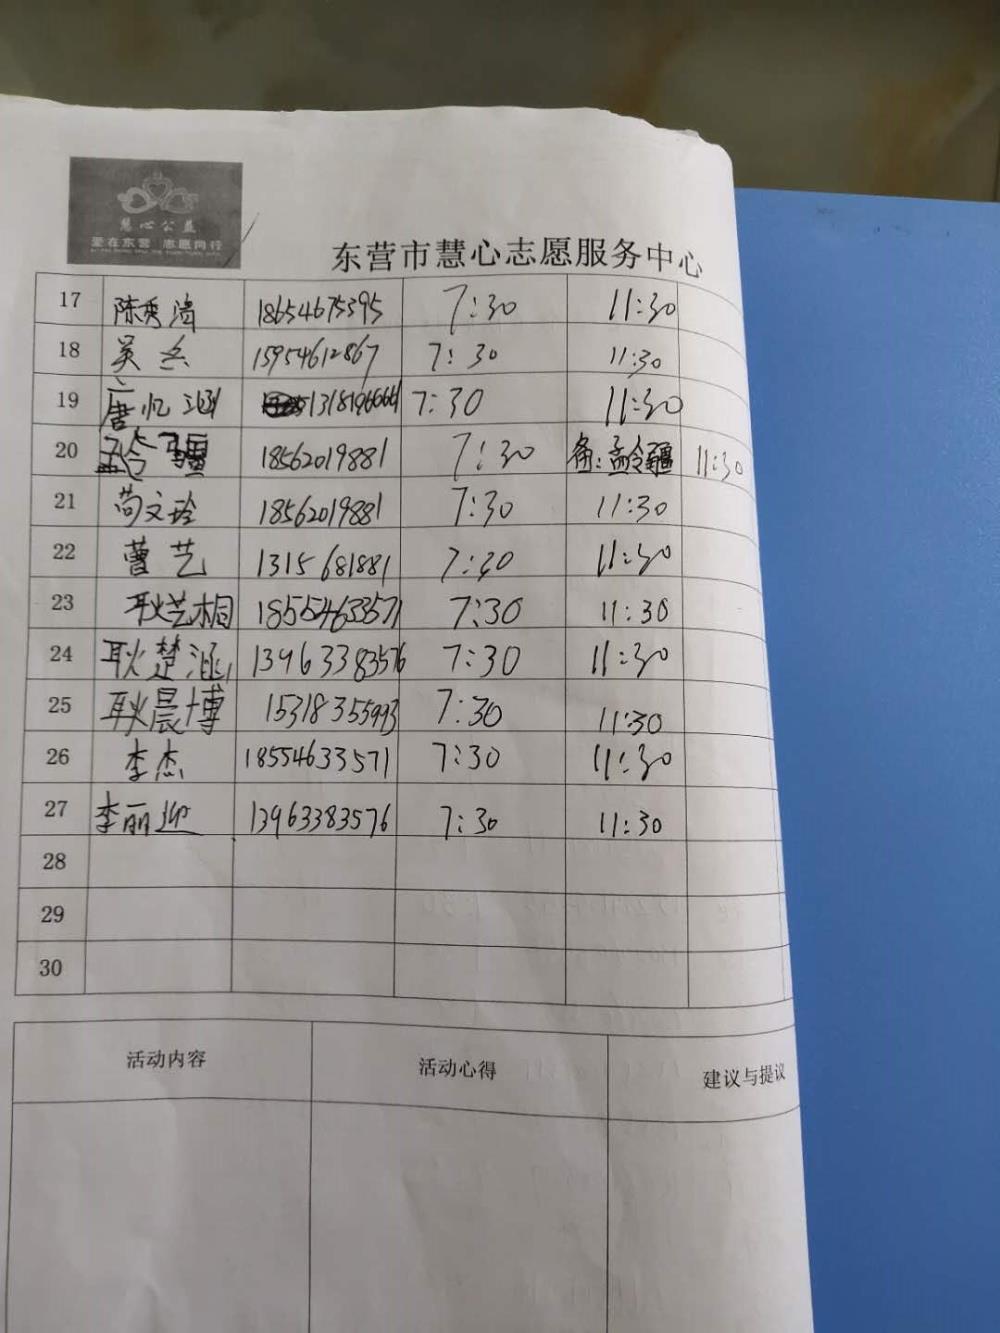 慧心公益
爱在东营 志愿同行
东营市慧心志愿服务中心
17 陈秀清 18654675395 7:30 11:30
18 吴 15954612867 7:30 11:30
19 唐忆涵 7:30 11:30
20 18562019881 7:30 备:孟令疆 11:30
21 苟文玲 18562019881 7:30 11:30
22 曹艺 1315681881 7:30 11:30
23 耿艺桐 18554633571 7:30 11:30
24 耿楚涵 13963383576 7:30 11:30
25 耿晨博 15318355993 7:30 11:30
26 李杰 18554633571 7:30 11:30
27 李丽迎 13963383576 7:30 11:30
28
29
30
活动内容 活动心得 建议与提议